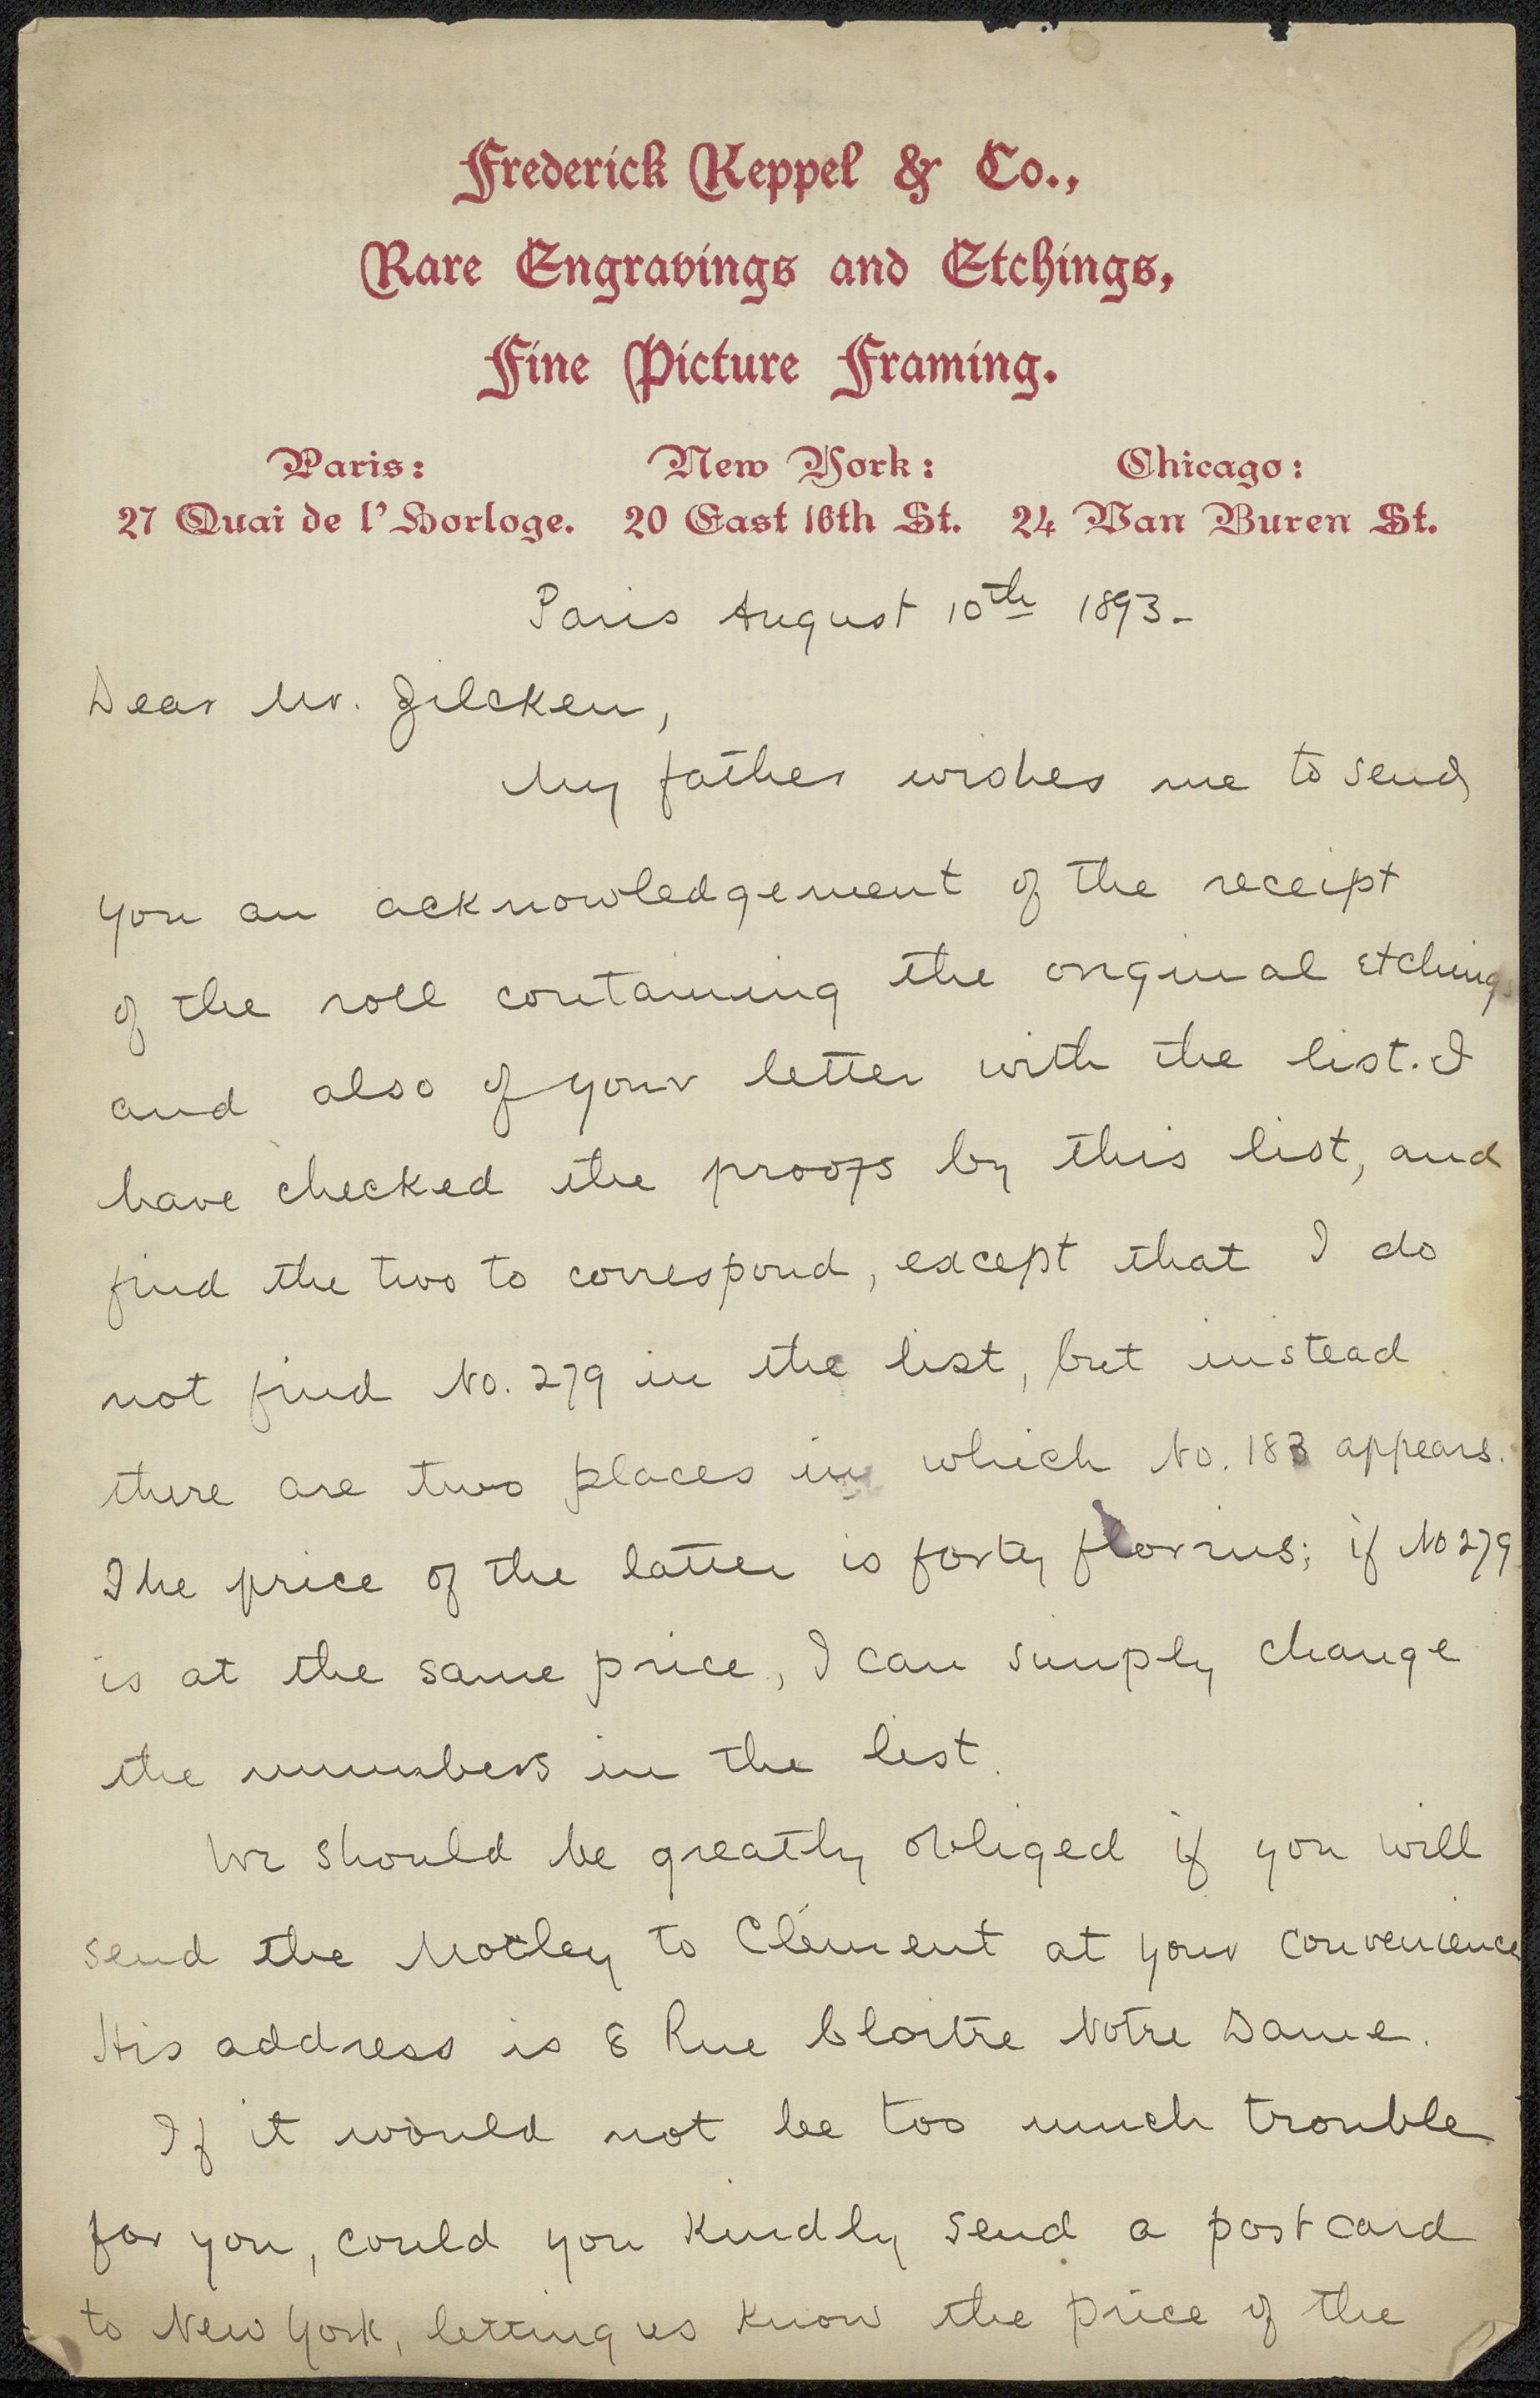 Frederick Keppel & Co.,
Rare Engravings and Etchings,
Fine Picture Framing.
Paris: New York: Chicago:
27 Quai de l'Horloge. 20 East 16th St. 24 Van Buren St.
Paris August 10th 1893.
Dear Mr. Zilcken,
My father wishes me to send
you an acknowledgement of the receipt
of the roll containing the original etchings
and also of your letter with the list. I
have checked the proofs by this list, and
find the two to correspond, except that I do
not find No. 279 in the list, but instead
there are two places in which No. 183 appears.
The price of the latter is forty florins; if No 279
is at the same price, I can simply change
the numbers in the list.
We should be greatly obliged if you will
send the Motley to Clément at your convenience
His address is 8 Rue Cloitre Notre Dame.
If it would not be too much trouble
for you, could you kindly send a postcard
to New York, letting us know the price of the